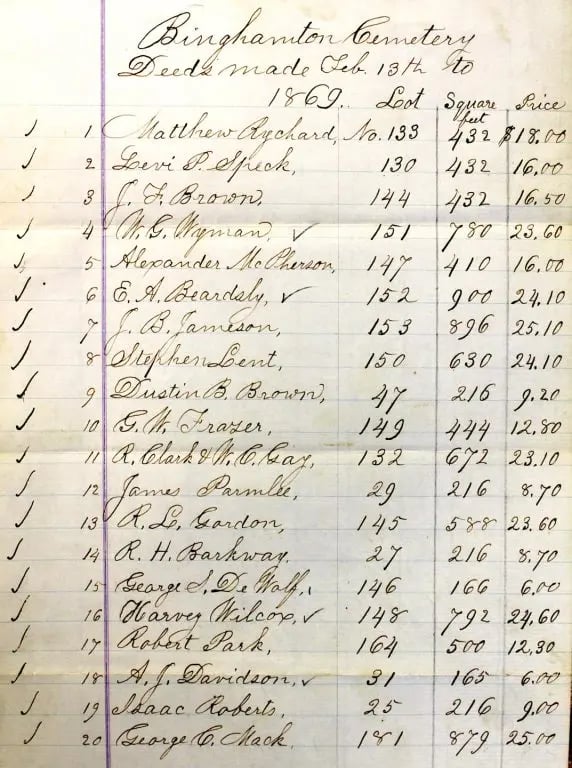 Binghamton Cemetery
Deeds made Feb. 13th to
1869. Lot Square feet Price
1 Matthew Rychard, No. 133 432 $18.00
2 Levi P. Speck, 130 432 16.00
3 J. F. Brown, 144 432 16.50
4 W. G. Wyman, ✓ 151 780 23.60
5 Alexander McPherson, 147 410 16.00
6 E. A. Beardsly, ✓ 152 900 24.10
7 J. B. Jameson, 153 896 25.10
8 Stephen Lent, 150 630 24.10
9 Dustin B. Brown, 47 216 9.20
10 G. W. Frazer, 149 444 12.80
11 R. Clark & W. C. Gay, 132 672 23.10
12 James Parmlee, 29 216 8.70
13 R. L. Gordon, 145 588 23.60
14 R. H. Barkway. 27 216 8.70
15 George S. De Wolf, 146 166 6.00
16 Harvey Wilcox, ✓ 148 792 24.60
17 Robert Park, 164 500 12.30
18 A. J. Davidson, ✓ 31 165 6.00
19 Isaac Roberts, 25 216 9.00
20 George C. Mack, 181 879 25.00